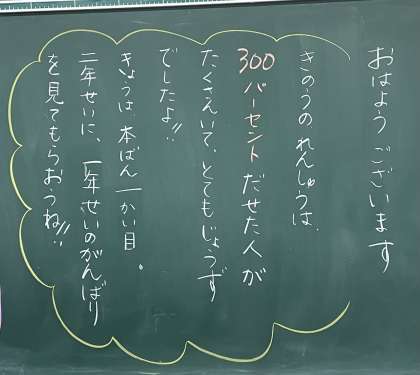 おはようございます
きのうのれんしゅうは、
300パーセントだせた人が
たくさんいて、とてもじょうず
でしたよ!!
きょうは、本ばん一かい目。
二年せいに、一年せいのがんばり
を見てもらおうね!!